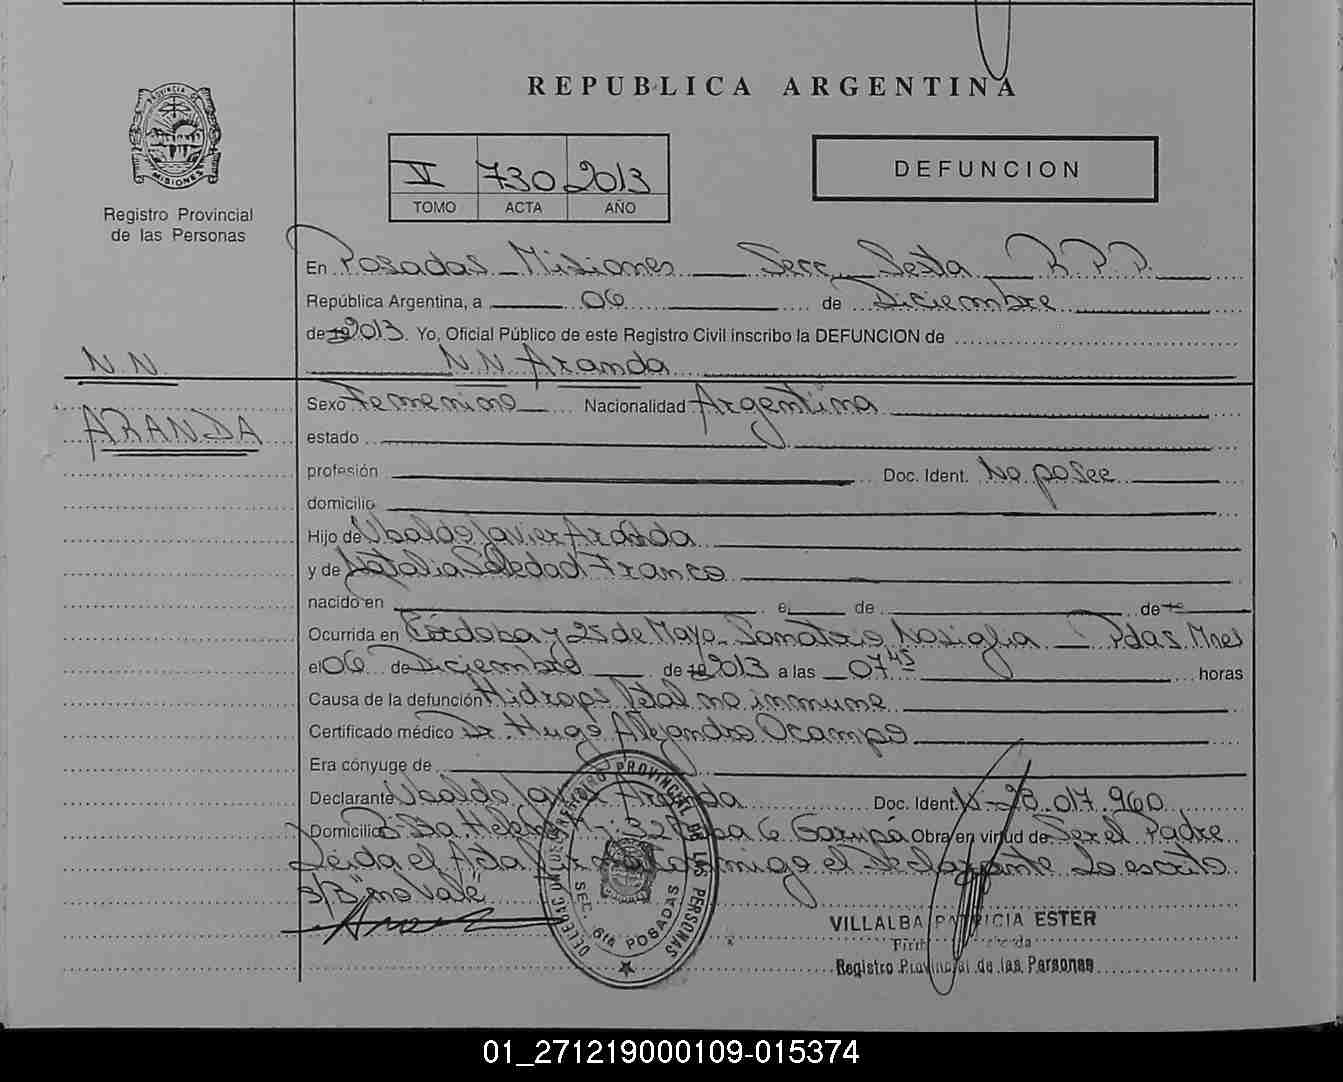 REPUBLICA ARGENTINA
PROVINCIA DE
MISIONES
Registro Provincial
de las Personas
V 730 2013
TOMO ACTA AÑO
DEFUNCION
En Posadas Misiones Secc. Sexta R.P.P.
República Argentina, a 06 de Diciembre
de 2013. Yo, Oficial Público de este Registro Civil inscribo la DEFUNCION de
N.N.
N.N Aranda
ARANDA
Sexo Femenino Nacionalidad Argentina
estado
profesión Doc. Ident. No posee
domicilio
Hijo de Ubaldo Javier Aranda
y de Natalia Soledad Franco
nacido en el de de
Ocurrida en Córdoba y 25 de Mayo Nosiglia Pdas. Mnes
el 06 de Diciembre de 2013 a las 07 45 horas
Causa de la defunción Hidrops fetal no inmune
Certificado médico Dr. Hugo Alejandro Ocampo
Era cónyuge de
Declarante Ubaldo Javier Aranda Doc. Ident. 28.017.960
Domicilio Sta Helena 32 Casa 6 Garupá Obra en virtud de Ser el Padre
Leida el Acta conmigo el declarante Lo escrito
s/B "no Vale"
DELEGACION REGISTRO PROVINCIAL DE LAS PERSONAS
SEC. 6ta POSADAS
VILLALBA PATRICIA ESTER
Registro Provincial de las Personas
01_271219000109-015374